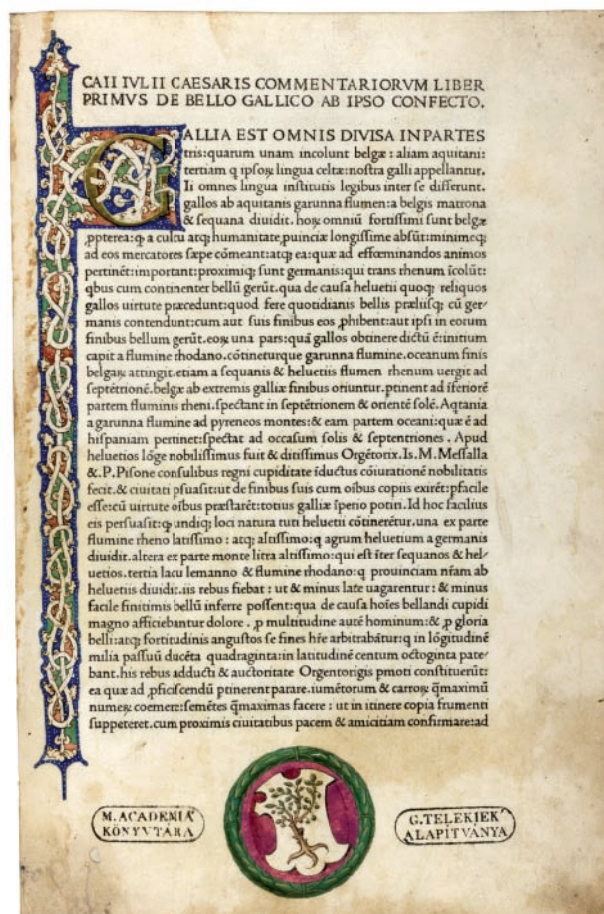 CAII IVLII CAESARIS COMMENTARIORVM LIBER
PRIMVS DE BELLO GALLICO AB IPSO CONFECTO.
GALLIA EST OMNIS DIVISA IN PARTES
tris:quarum unam incolunt belgæ : aliam aquitani:
tertiam q ipsoꝝ lingua celtæ:nostra galli appellantur.
Ii omnes lingua institutis legibus inter se differunt.
gallos ab aquitanis garunna flumen:a belgis matrona
& sequana diuidit. hoꝝ omniũ fortissimi sunt belgæ
ꝓpterea:ꝙ a cultu atqꝫ humanitate ꝓuinciæ longissime absũt:minimeqꝫ
ad eos mercatores sæpe cõmeant:atqꝫ ea:quæ ad effœminandos animos
pertinẽt:important:proximiqꝫ sunt germanis:qui trans rhenum ĩcolũt:
qbus cum continenter bellũ gerũt.qua de causa heluetii quoqꝫ reliquos
gallos uirtute præcedunt:quod fere quotidianis bellis præliisqꝫ cũ ger/
manis contendunt:cum aut suis finibus eos ꝓhibent:aut ipsi in eorum
finibus bellum gerũt.eoꝝ una pars:quã gallos obtinere dictũ ẽ:initium
capit a flumine rhodano.cõtineturque garunna flumine.oceanum finis
belgaꝝ attingit.etiam a sequanis & heluetiis flumen rhenum uergit ad
septẽtrionẽ.belgæ ab extremis galliæ finibus oriuntur.ptinent ad ĩferiorẽ
partem fluminis rheni.spectant in septẽtrionem & orientẽ solẽ.Aqtania
a garunna flumine ad pyreneos montes:& eam partem oceani:quæ ẽ ad
hispaniam pertinet:spectat ad occasum solis & septentriones . Apud
heluetios lõge nobilissimus fuit & ditissimus Orgẽtorix.Is.M.Messalla
&.P.Pisone consulibus regni cupiditate ĩductus cõiurationẽ nobilitatis
fecit.& ciuitati psuasit:ut de finibus suis cum oĩbus copiis exirẽt:pfacile
esse:cũ uirtute oĩbus præstarẽt:totius galliæ ĩperio potiri.Id hoc facilius
eis persuasit:ꝙ undiqꝫ loci natura tuti heluetii cõtinerẽtur.una ex parte
flumine rheno latissimo : atqꝫ altissimo:q agrum heluetium a germanis
diuidit.altera ex parte monte Iura altissimo:qui est ĩter sequanos & hel/
uetios.tertia lacu lemanno & flumine rhodano:q prouinciam nr̃am ab
heluetiis diuidit.iis rebus fiebat : ut & minus late uagarentur : & minus
facile finitimis bellũ inferre possent:qua de causa hoĩes bellandi cupidi
magno afficiebantur dolore . ꝓ multitudine autẽ hominum:& ꝓ gloria
belli:atqꝫ fortitudinis angustos se fines hr̃e arbitrabãtur:q in lõgitudinẽ
milia passuũ ducẽta quadraginta:in latitudinẽ centum octoginta pate/
bant.his rebus adducti & auctoritate Orgentorigis pmoti constituerũt:
ea quæ ad ꝓficiscendũ ptinerent parare.iumẽtorum & carroꝝ q̃maximũ
numeꝝ coemere:semẽtes q̃maximas facere : ut in itinere copia frumenti
suppeteret.cum proximis ciuitatibus pacem & amicitiam confirmare:ad
M. ACADEMIA
KÖNYVTÁRA
G. TELEKIEK
ALAPITVÁNYA